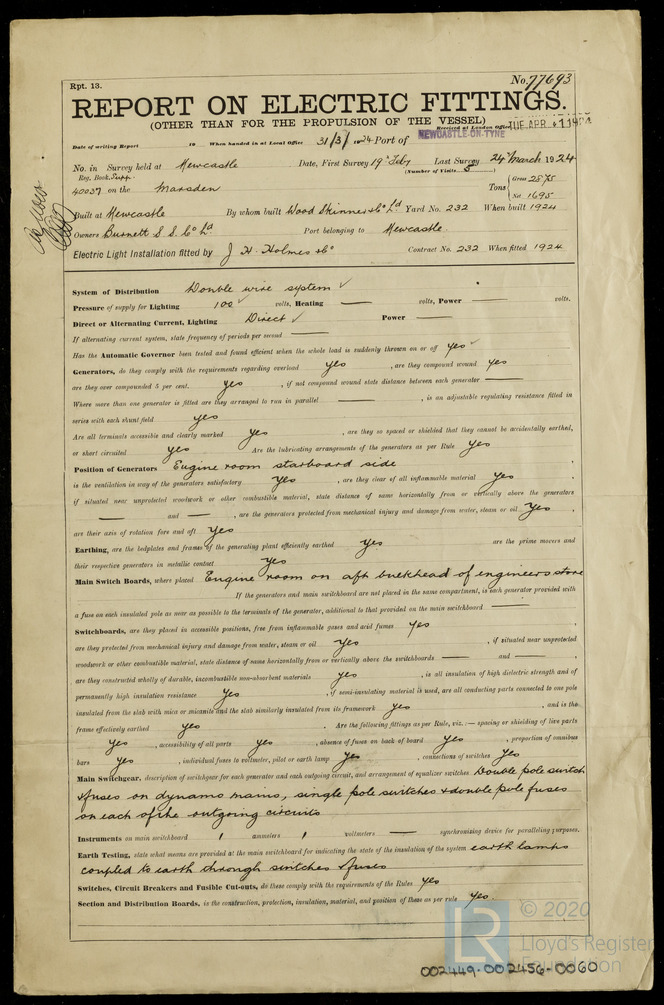 Rpt. 13.
No. 77693
REPORT ON ELECTRIC FITTINGS.
(OTHER THAN FOR THE PROPULSION OF THE VESSEL)
Received at London Office TUE. APR. -1 1924
Date of writing Report 19 When handed in at Local Office 31/3/1924 Port of NEWCASTLE-ON-TYNE
No. in Survey held at Newcastle Date, First Survey 19th Feby Last Survey 24th March 1924
Reg. Book. Supp. (Number of Visits 5)
40037 on the Marsden Tons { Gross 2875
Net 1695
Built at Newcastle By whom built Wood Skinner & Co Ld Yard No. 232 When built 1924
Owners Burnett S S Co Ld Port belonging to Newcastle
Electric Light Installation fitted by J H Holmes & Co Contract No. 232 When fitted 1924
System of Distribution Double wire system ✓
Pressure of supply for Lighting 100 ✓ volts, Heating — volts, Power — volts.
Direct or Alternating Current, Lighting Direct ✓ Power —
If alternating current system, state frequency of periods per second —
Has the Automatic Governor been tested and found efficient when the whole load is suddenly thrown on or off yes ✓
Generators, do they comply with the requirements regarding overload yes , are they compound wound yes
are they over compounded 5 per cent. yes , if not compound wound state distance between each generator —
Where more than one generator is fitted are they arranged to run in parallel — , is an adjustable regulating resistance fitted in
series with each shunt field yes
Are all terminals accessible and clearly marked yes , are they so spaced or shielded that they cannot be accidentally earthed,
or short circuited yes Are the lubricating arrangements of the generators as per Rule yes
Position of Generators Engine room starboard side
is the ventilation in way of the generators satisfactory yes , are they clear of all inflammable material yes ,
if situated near unprotected woodwork or other combustible material, state distance of same horizontally from or vertically above the generators
— and — , are the generators protected from mechanical injury and damage from water, steam or oil yes ,
are their axis of rotation fore and aft yes
Earthing, are the bedplates and frames of the generating plant efficiently earthed yes are the prime movers and
their respective generators in metallic contact yes
Main Switch Boards, where placed Engine room on aft bulkhead of engineers store
If the generators and main switchboard are not placed in the same compartment, is each generator provided with
a fuse on each insulated pole as near as possible to the terminals of the generator, additional to that provided on the main switchboard —
Switchboards, are they placed in accessible positions, free from inflammable gases and acid fumes yes ,
are they protected from mechanical injury and damage from water, steam or oil yes , if situated near unprotected
woodwork or other combustible material, state distance of same horizontally from or vertically above the switchboards — and — ,
are they constructed wholly of durable, incombustible non-absorbent materials yes , is all insulation of high dielectric strength and of
permanently high insulation resistance yes , if semi-insulating material is used, are all conducting parts connected to one pole
insulated from the slab with mica or micanite and the slab similarly insulated from its framework yes , and is the
frame effectively earthed yes . Are the following fittings as per Rule, viz.:— spacing or shielding of live parts
yes , accessibility of all parts yes , absence of fuses on back of board yes , proportion of omnibus
bars yes , individual fuses to voltmeter, pilot or earth lamp yes , connections of switches yes
Main Switchgear, description of switchgear for each generator and each outgoing circuit, and arrangement of equalizer switches Double pole switch
& fuses on dynamo mains, single pole switches & double pole fuses
on each of the outgoing circuits
Instruments on main switchboard 1 ammeters 1 voltmeters — synchronising device for paralleling purposes.
Earth Testing, state what means are provided at the main switchboard for indicating the state of the insulation of the system earth lamps
coupled to earth through switches & fuses
Switches, Circuit Breakers and Fusible Cut-outs, do these comply with the requirements of the Rules yes
Section and Distribution Boards, is the construction, protection, insulation, material, and position of these as per rule yes.
© 2020
LR
Lloyd's Register
Foundation
002449-002456-0060